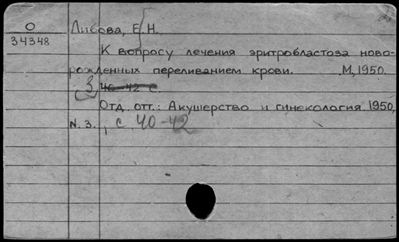 О
34348
Либова, Е.Н.
К вопросу лечения эритробластоза ново-
рожденных переливанием крови. М, 1950.
3, 40-42 с.
Отд. отт.: Акушерство и гинекология 1950,
N. 3. , с. 40-42